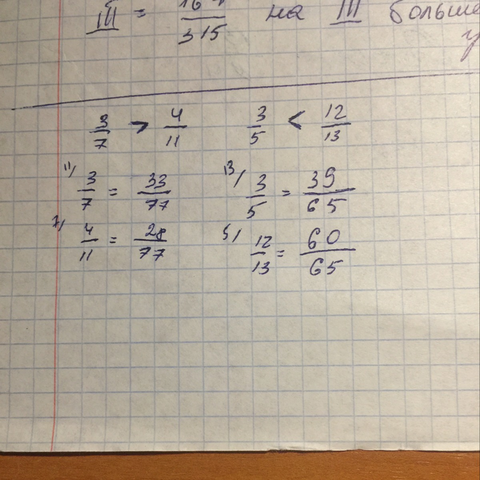 III = /315 на III больше
3/7 > 4/11 3/5 < 12/13
11) 3/7 = 33/77 13) 3/5 = 39/65
7) 4/11 = 28/77 5) 12/13 = 60/65